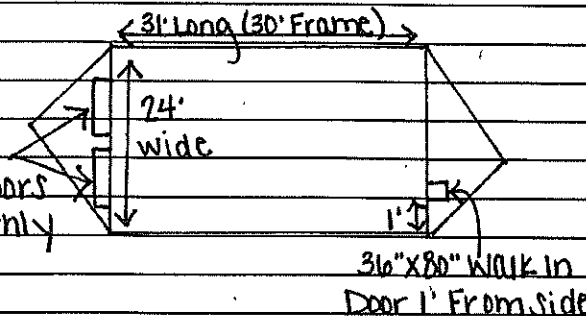 31' Long (30' Frame)
24'
wide
ors
nly
1'
36"X80" Walk In
Door 1' From Side